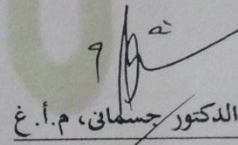 الدكتور جسمانى، م.أ.غ